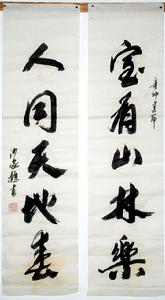 室有山林樂
辛卯
人同天地春
書